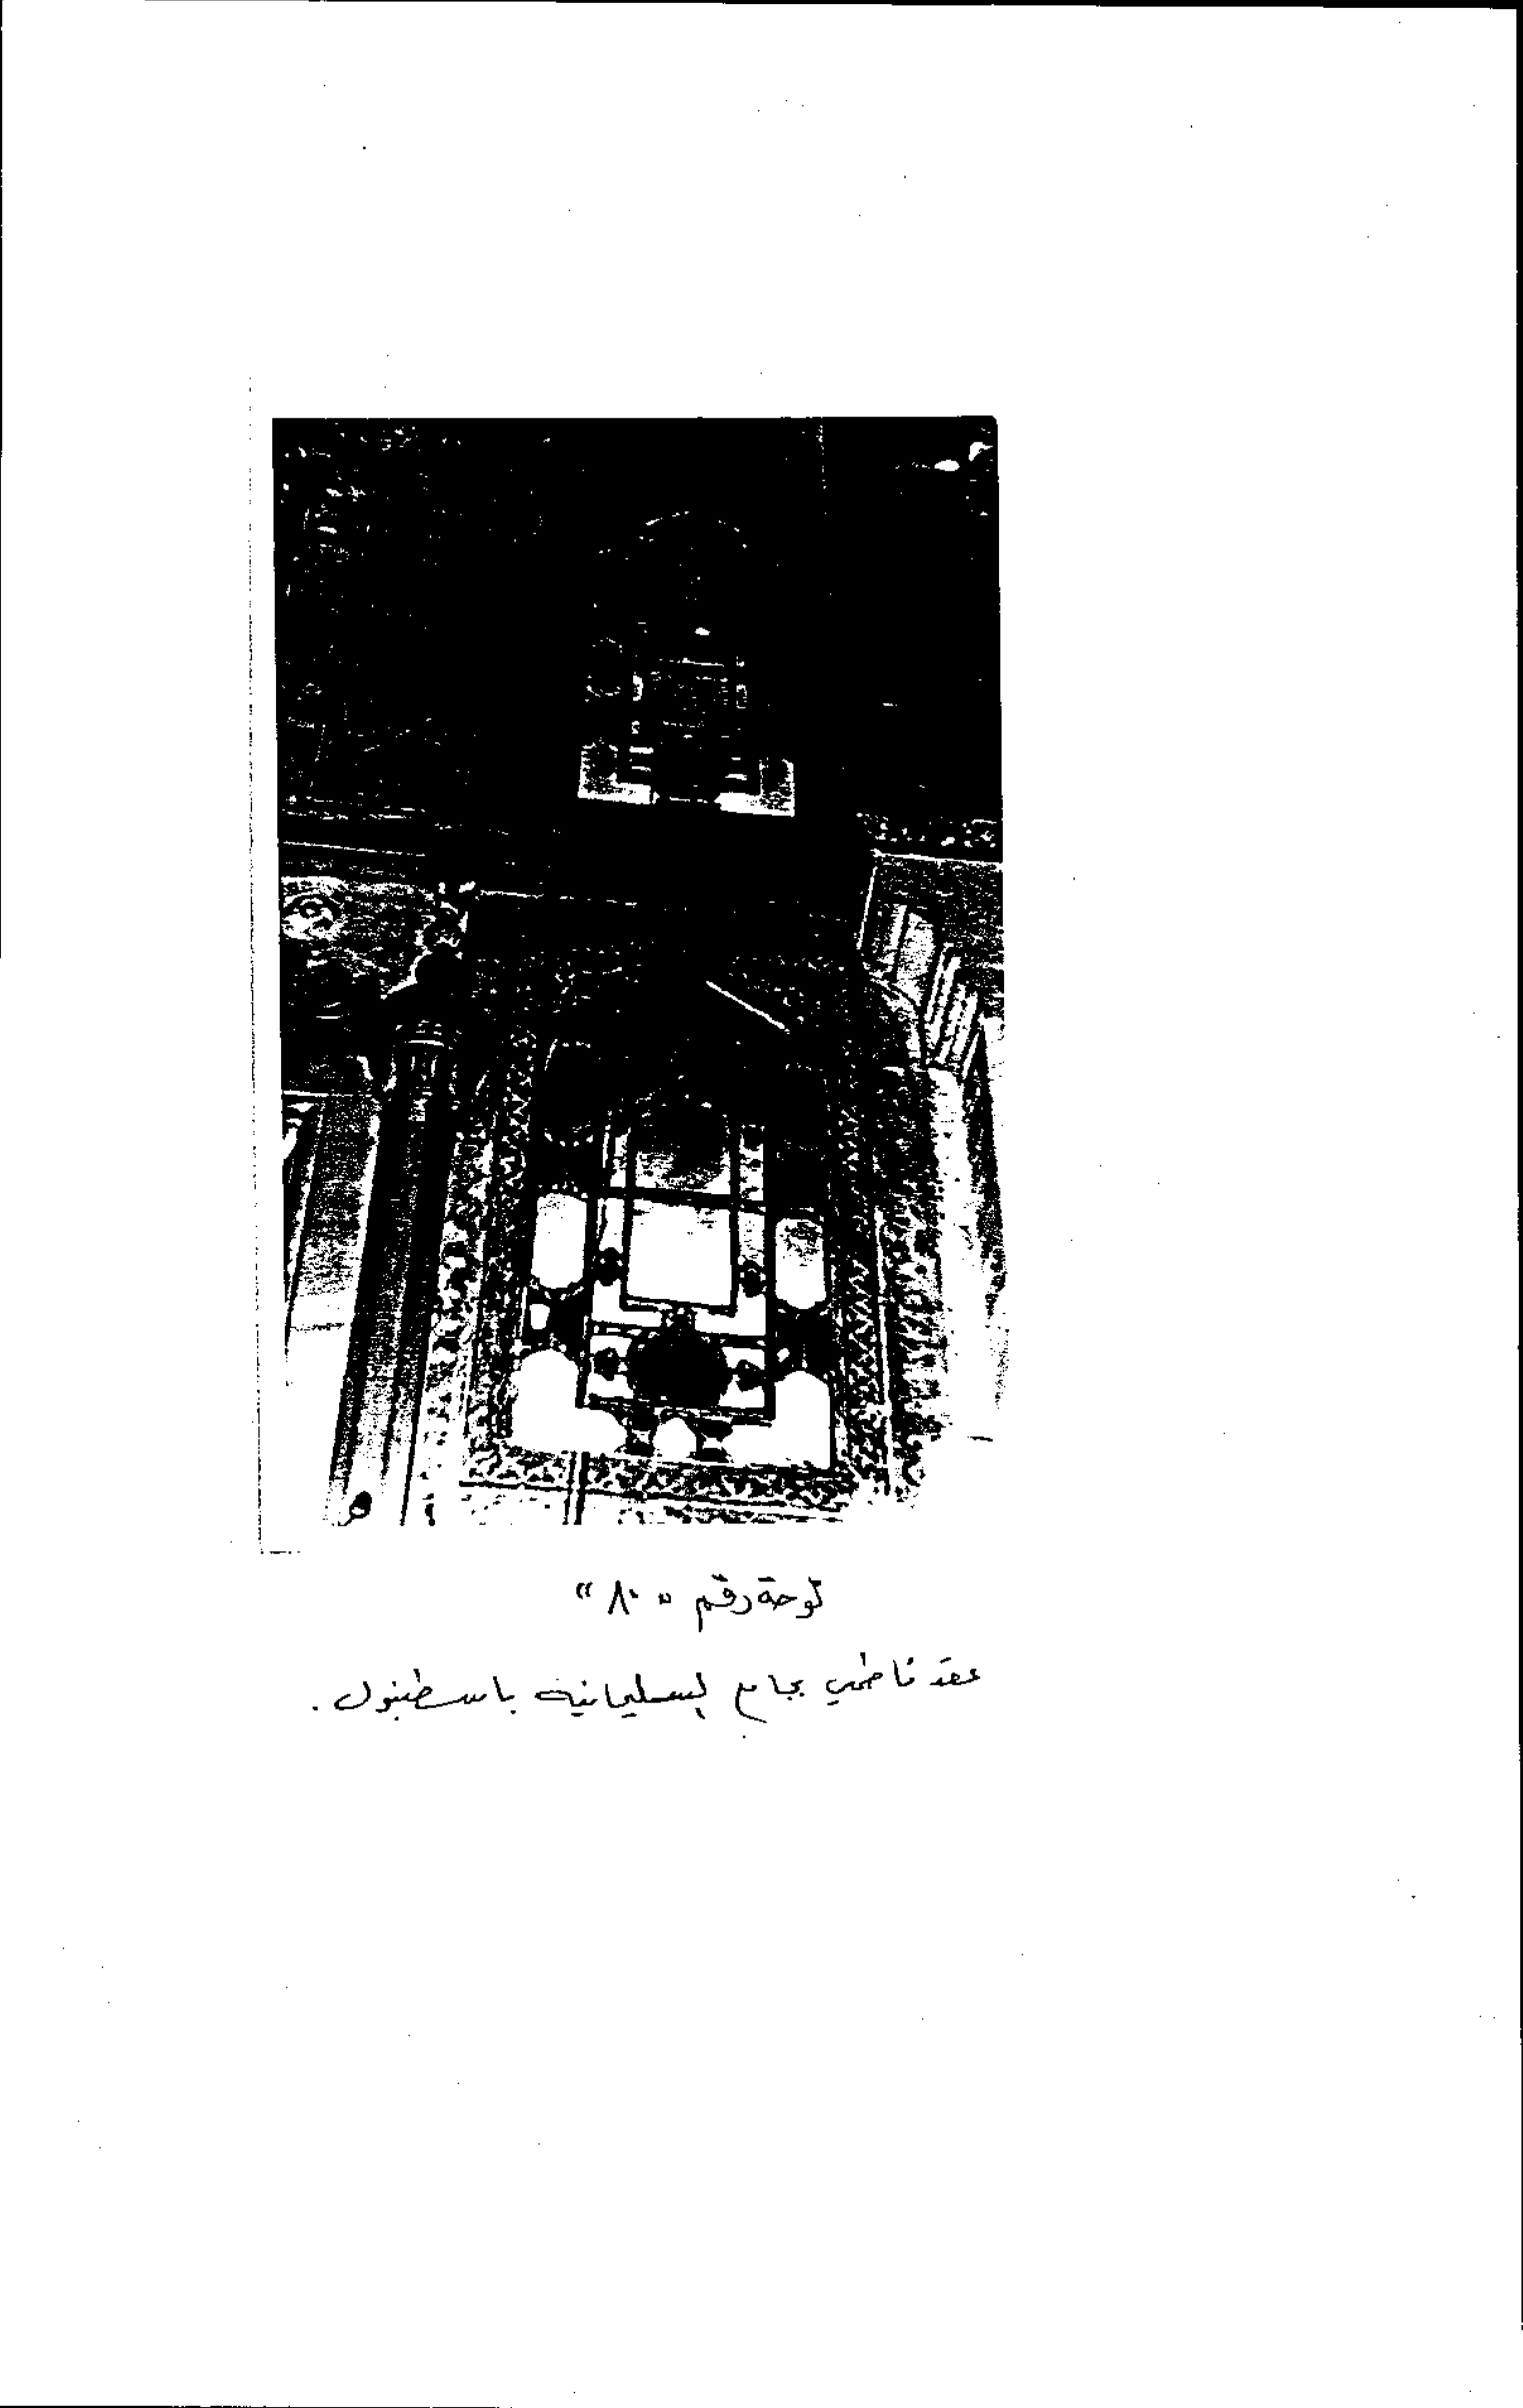 لوحة رقم "٨٠"
عقد فاطمي بجامع السليمانية باسطنبول.